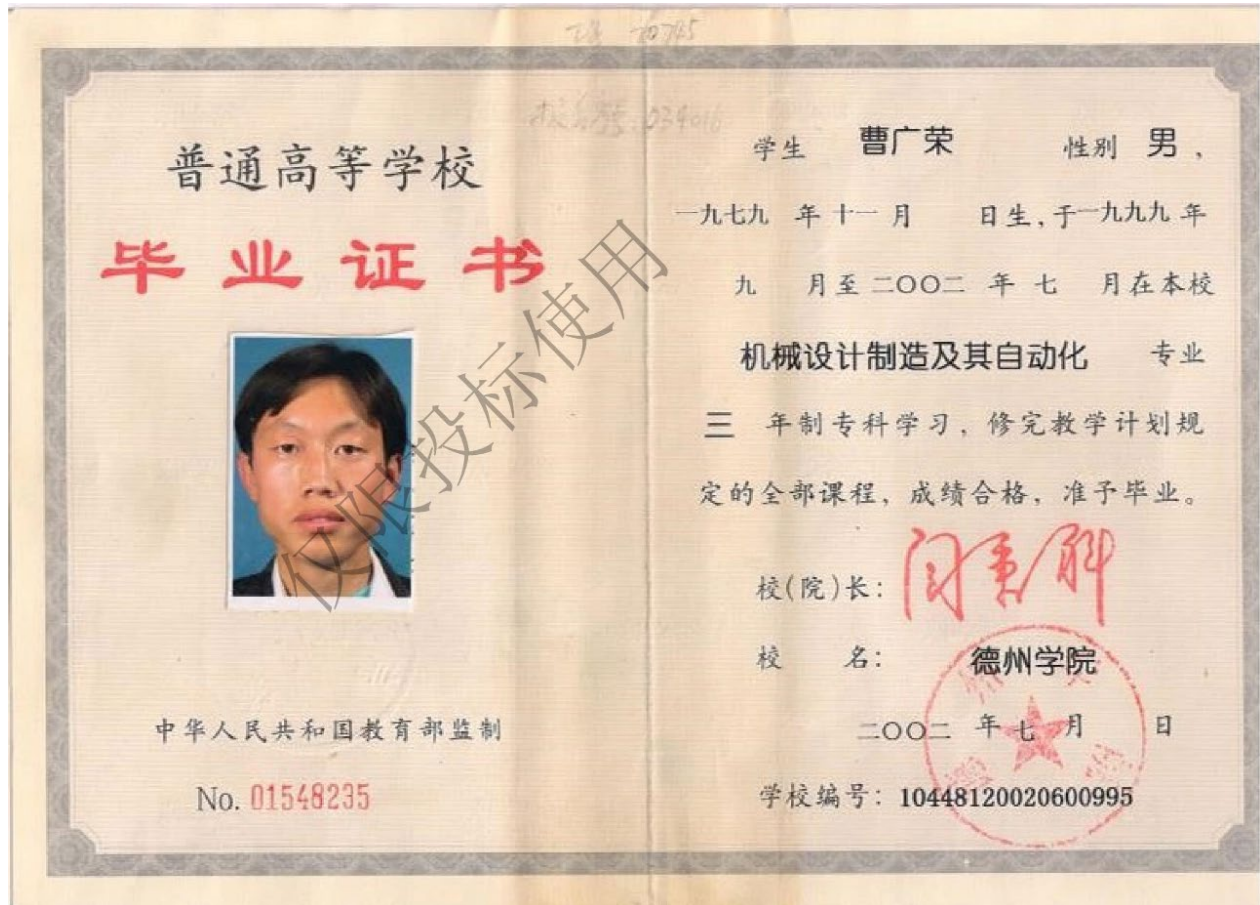 普通高等学校
毕业证书
中华人民共和国教育部监制
No. 01548235
学生 曹广荣 性别 男,
一九七九 年十一月 日生,于一九九九 年
九 月至二〇〇二 年 七 月在本校
机械设计制造及其自动化 专业
三 年制专科学习,修完教学计划规
定的全部课程,成绩合格,准予毕业。
校(院)长:
校 名: 德州学院
二〇〇二 年七月 日
学校编号: 10448120020600995
仅限投标使用